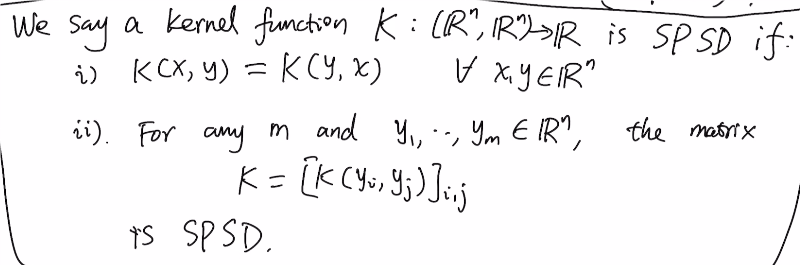 We say a kernel function K : (ℝⁿ, ℝⁿ)→ℝ is SPSD if:
i) K(x, y) = K(y, x) ∀ x, y ∈ ℝⁿ
ii). For any m and y₁, ··, yₘ ∈ ℝⁿ, the matrix
K = [K(yᵢ, yⱼ)]ᵢ,ⱼ
is SPSD.